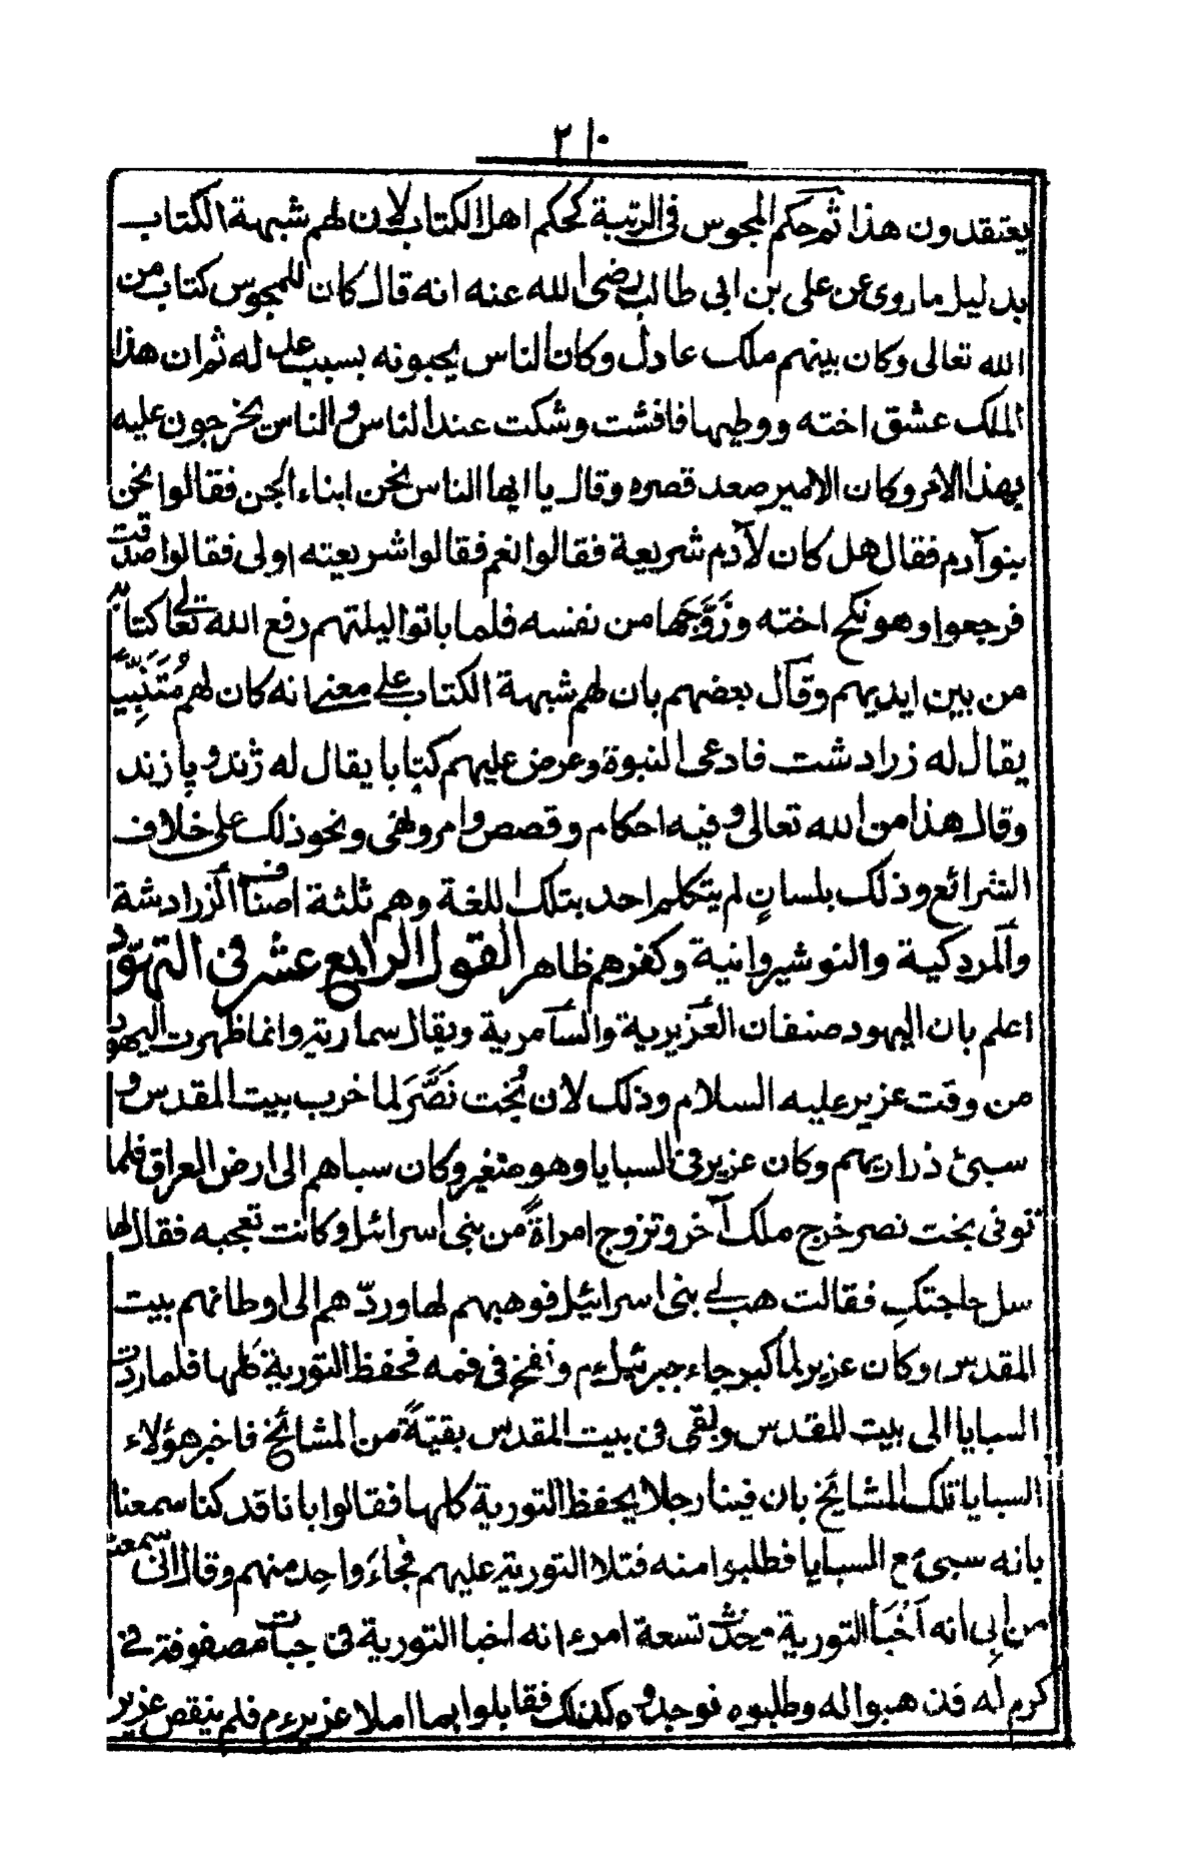 ٢١٠
يعتقدون هذا ثم حكم المجوس فى الرتبة كحكم اهل الكتاب لان لهم شبهة الكتاب
بدليل ماروى عن على بن ابى طالب رضى الله عنه انه قال كان للمجوس كتاب من
الله تعالى وكان بينهم ملك عادل وكان الناس يحبونه بسبب عدله ثم ان هذا
الملك عشق اخته ووطيها فافشت وشكت عند الناس والناس يخرجون عليه
بهذا الامر وكان الامير صعد قصره وقال يا ايها الناس نحن ابناء الجن فقالوا نحن
بنو آدم فقال هل كان لآدم شريعة فقالوا نعم فقالوا شريعته اولى فقالوا صدقت
فرجعوا وهو نكح اخته وزَوَّجَها من نفسه فلما باتوا ليلتهم رفع الله تعالى كتابه
من بين ايديهم وقال بعضهم بان لهم شبهة الكتاب على معنى انه كان لهم مُتَنَبِّيًا
يقال له زرادشت فادعى النبوة وعرض عليهم كتابا يقال له ژند وپازند
وقال هذا من الله تعالى وفيه احكام وقصص وامر ونهى ونحو ذلك على خلاف
الشرائع وذلك بلسانٍ لم يتكلم احد بتلك اللغة وهم ثلثة اصناف الزرادشة
والمردكية والنوشيروانية وكفرهم ظاهر القول الرابع عشر فى التهوّد
اعلم بان اليهود صنفان العزيرية والسامرية ويقال سمارية وانما ظهرت اليهود
من وقت عزير عليه السلام وذلك لان بُخت نَصَّرَ لما خرب بيت المقدس و
سبئ ذراريهم وكان عزير فى السبايا وهو صغير وكان سباهم الى ارض العراق فلما
توفى بخت نصر خرج ملك آخر وتزوج امراةً من بنى اسرائيل وكانت تعجبه فقال لها
سل حاجتكِ فقالت هب لى بنى اسرائيل فوهبهم لها وردّهم الى اوطانهم بيت
المقدس وكان عزير لما كبر جاء جبرئيل ءم ونفخ فى فمه فحفظ التورية كلها فلما ردت
السبايا الى بيت المقدس وبقى فى بيت المقدس بقيّةً من المشائخ فاخبر هؤلاء
السبايا تلك المشائخ بان فينا رجلا يحفظ التورية كلها فقالوا بانا قد كنا سمعنا
بانه سبئ مع السبايا فطلبوا منه فتلا التورية عليهم فجاءَ واحد منهم وقال انى سمعت
من ابى انه اَخْبَأَ التورية تسعة امرء انه اخبا التورية فى جبات مصفوفة فى
كرم له فذهبوا له وطلبوه فوجدوه كذلك فقابلوا بما املا عزير ءم فلم ينقص عزير